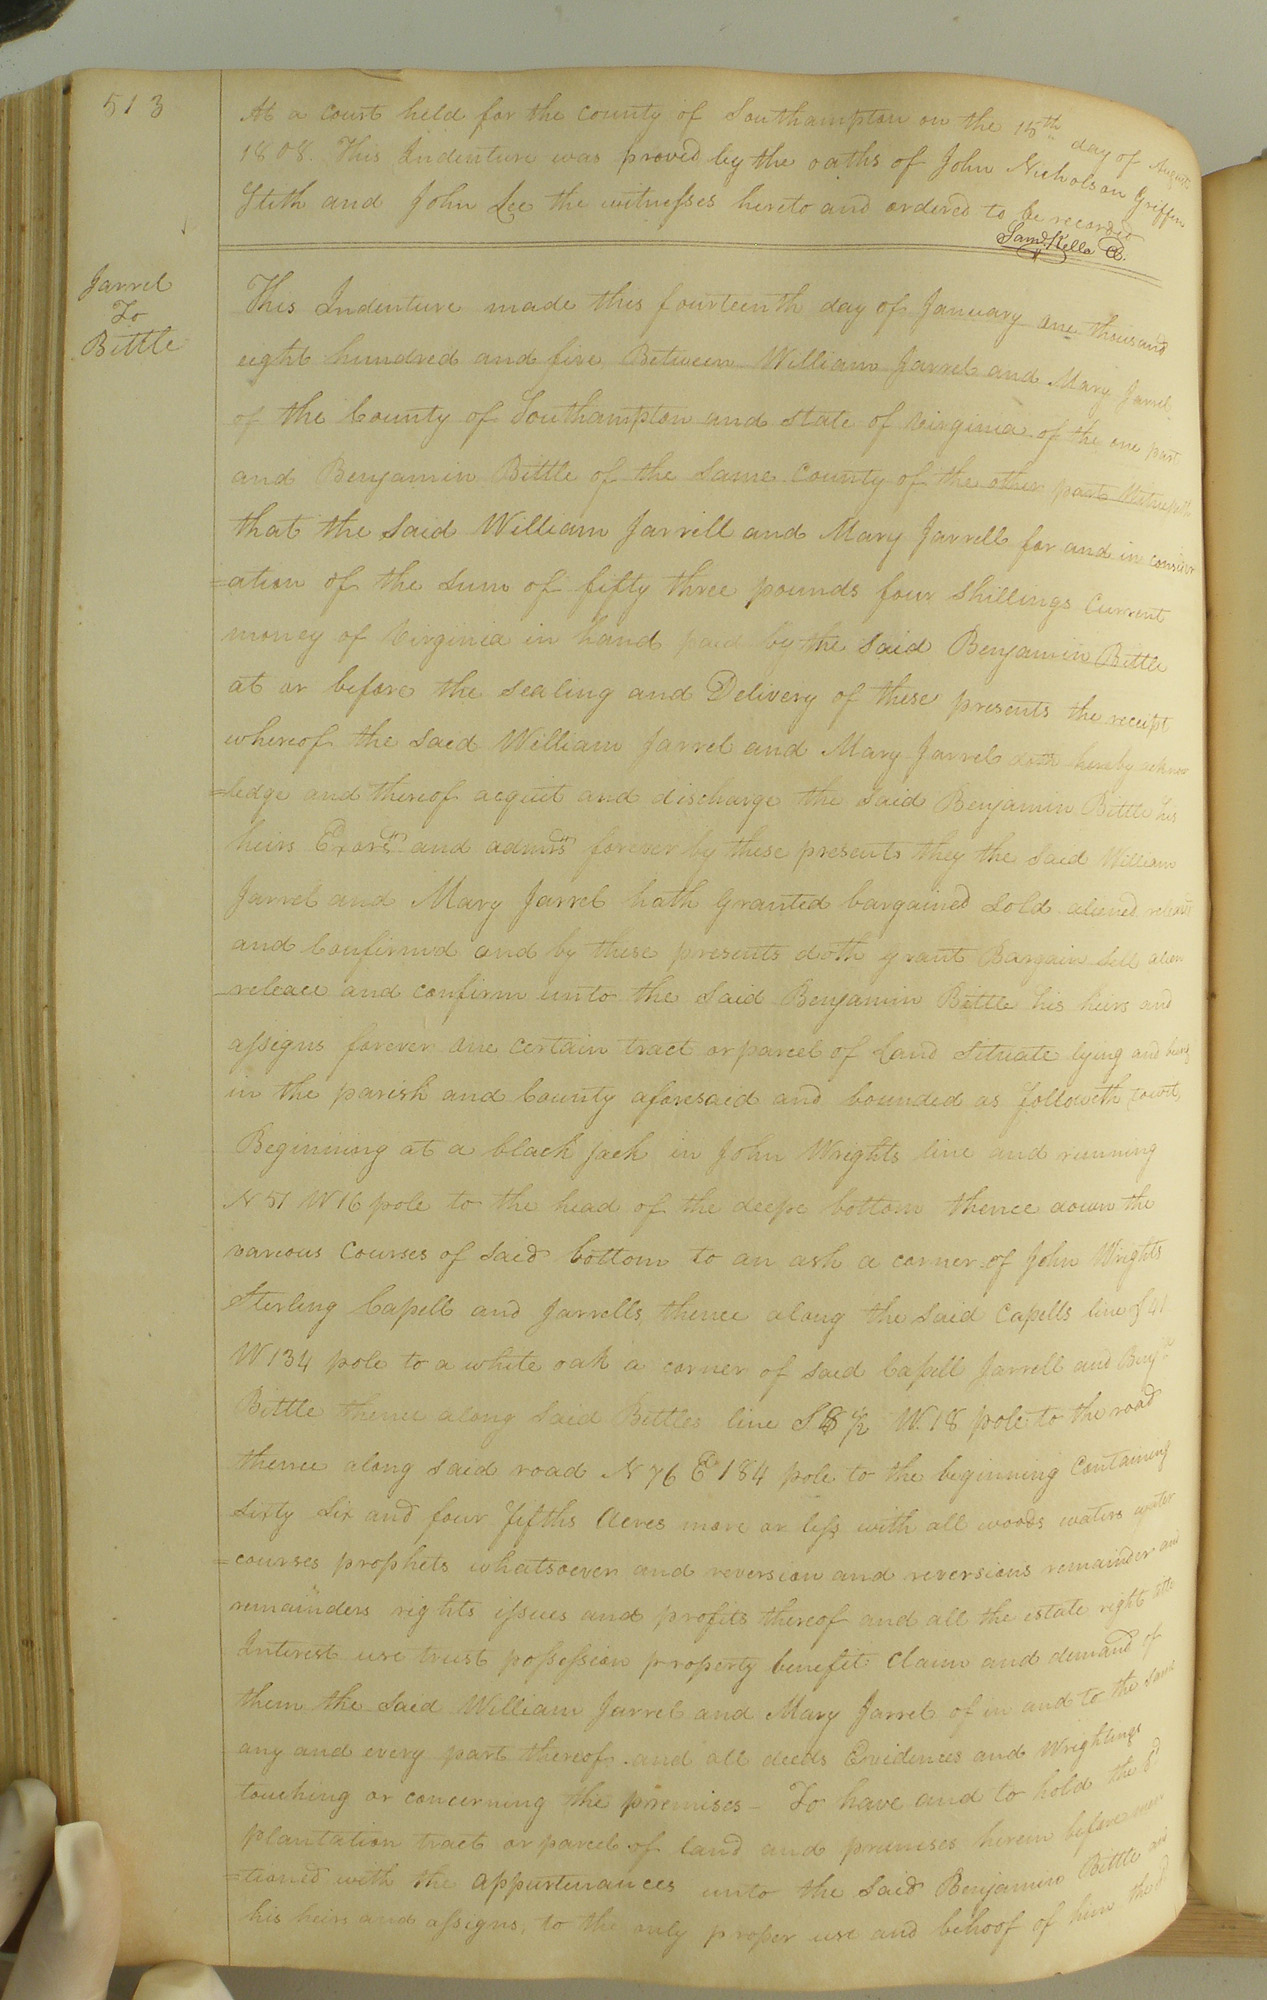 513
At a court held for the county of Southampton on the 15th day of August
1808. This Indenture was proved by the oaths of John Nicholson Griffin
Stith and John Lee the witnesses hereto and ordered to be recorded
Saml. Kello Cl.
Jarrel
To
Bittle
This Indenture made this fourteenth day of January one thousand
eight hundred and five Between William Jarrel and Mary Jarrel
of the County of Southampton and state of Virginia of the one part
and Benjamin Bittle of the same County of the other part Witnesseth
that the said William Jarrill and Mary Jarrell for and in consider
=ation of the sum of fifty three pounds four shillings current
money of Virginia in hand paid by the said Benjamin Bittle
at or before the sealing and Delivery of these presents the receipt
whereof the said William Jarrel and Mary Jarrel doth hereby acknow
=ledge and thereof acquit and discharge the said Benjamin Bittle his
heirs Exors. and admrs. forever by these presents they the said William
Jarrel and Mary Jarrel hath Granted bargained sold aliened releas'd
and Confirmd and by these presents doth grant Bargain sell alien
release and confirm unto the said Benjamin Bittle his heirs and
assigns forever one certain tract or parcel of Land situate lying and being
in the parish and County aforesaid and bounded as followeth (towit)
Beginning at a black jack in John Wrights line and running
N 51 W 16 pole to the head of the deepe bottom thence down the
various Courses of said bottom to an ash a corner of John Wrights
Sterling Capell and Jarrells thence along the said Capells line S 41
W 134 pole to a white oak a corner of said Capell Jarrell and Benjn.
Bittle thence along said Bittles line S 1/2 W. 18 pole to the road
thence along said road N 76 E 184 pole to the beginning Containing
sixty six and four fifths Acres more or less with all woods waters water
=courses prophets whatsoever and reversion and reversions remainder and
remainders rights issues and profits thereof and all the estate right title
Interest use trust possession property benefit Claim and demand of
them the said William Jarrel and Mary Jarrel of in and to the same
any and every part thereof and all deeds Evidences and Wrightings
touching or concerning the premises – To have and to hold the sd.
plantation tract or parcel of land and premises herein before men
=tioned with the appurtenances unto the said Benjamin Bittle and
his heirs and assigns, to the only proper use and behoof of him the sd.